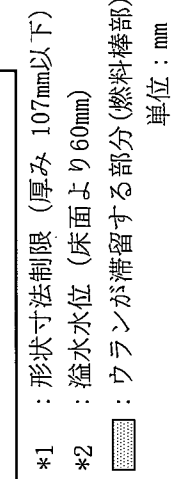 *1 :形状寸法制限(厚み 107mm以下)
*2 :溢水水位(床面より60mm)
:ウランが滞留する部分(燃料棒部)
単位:mm